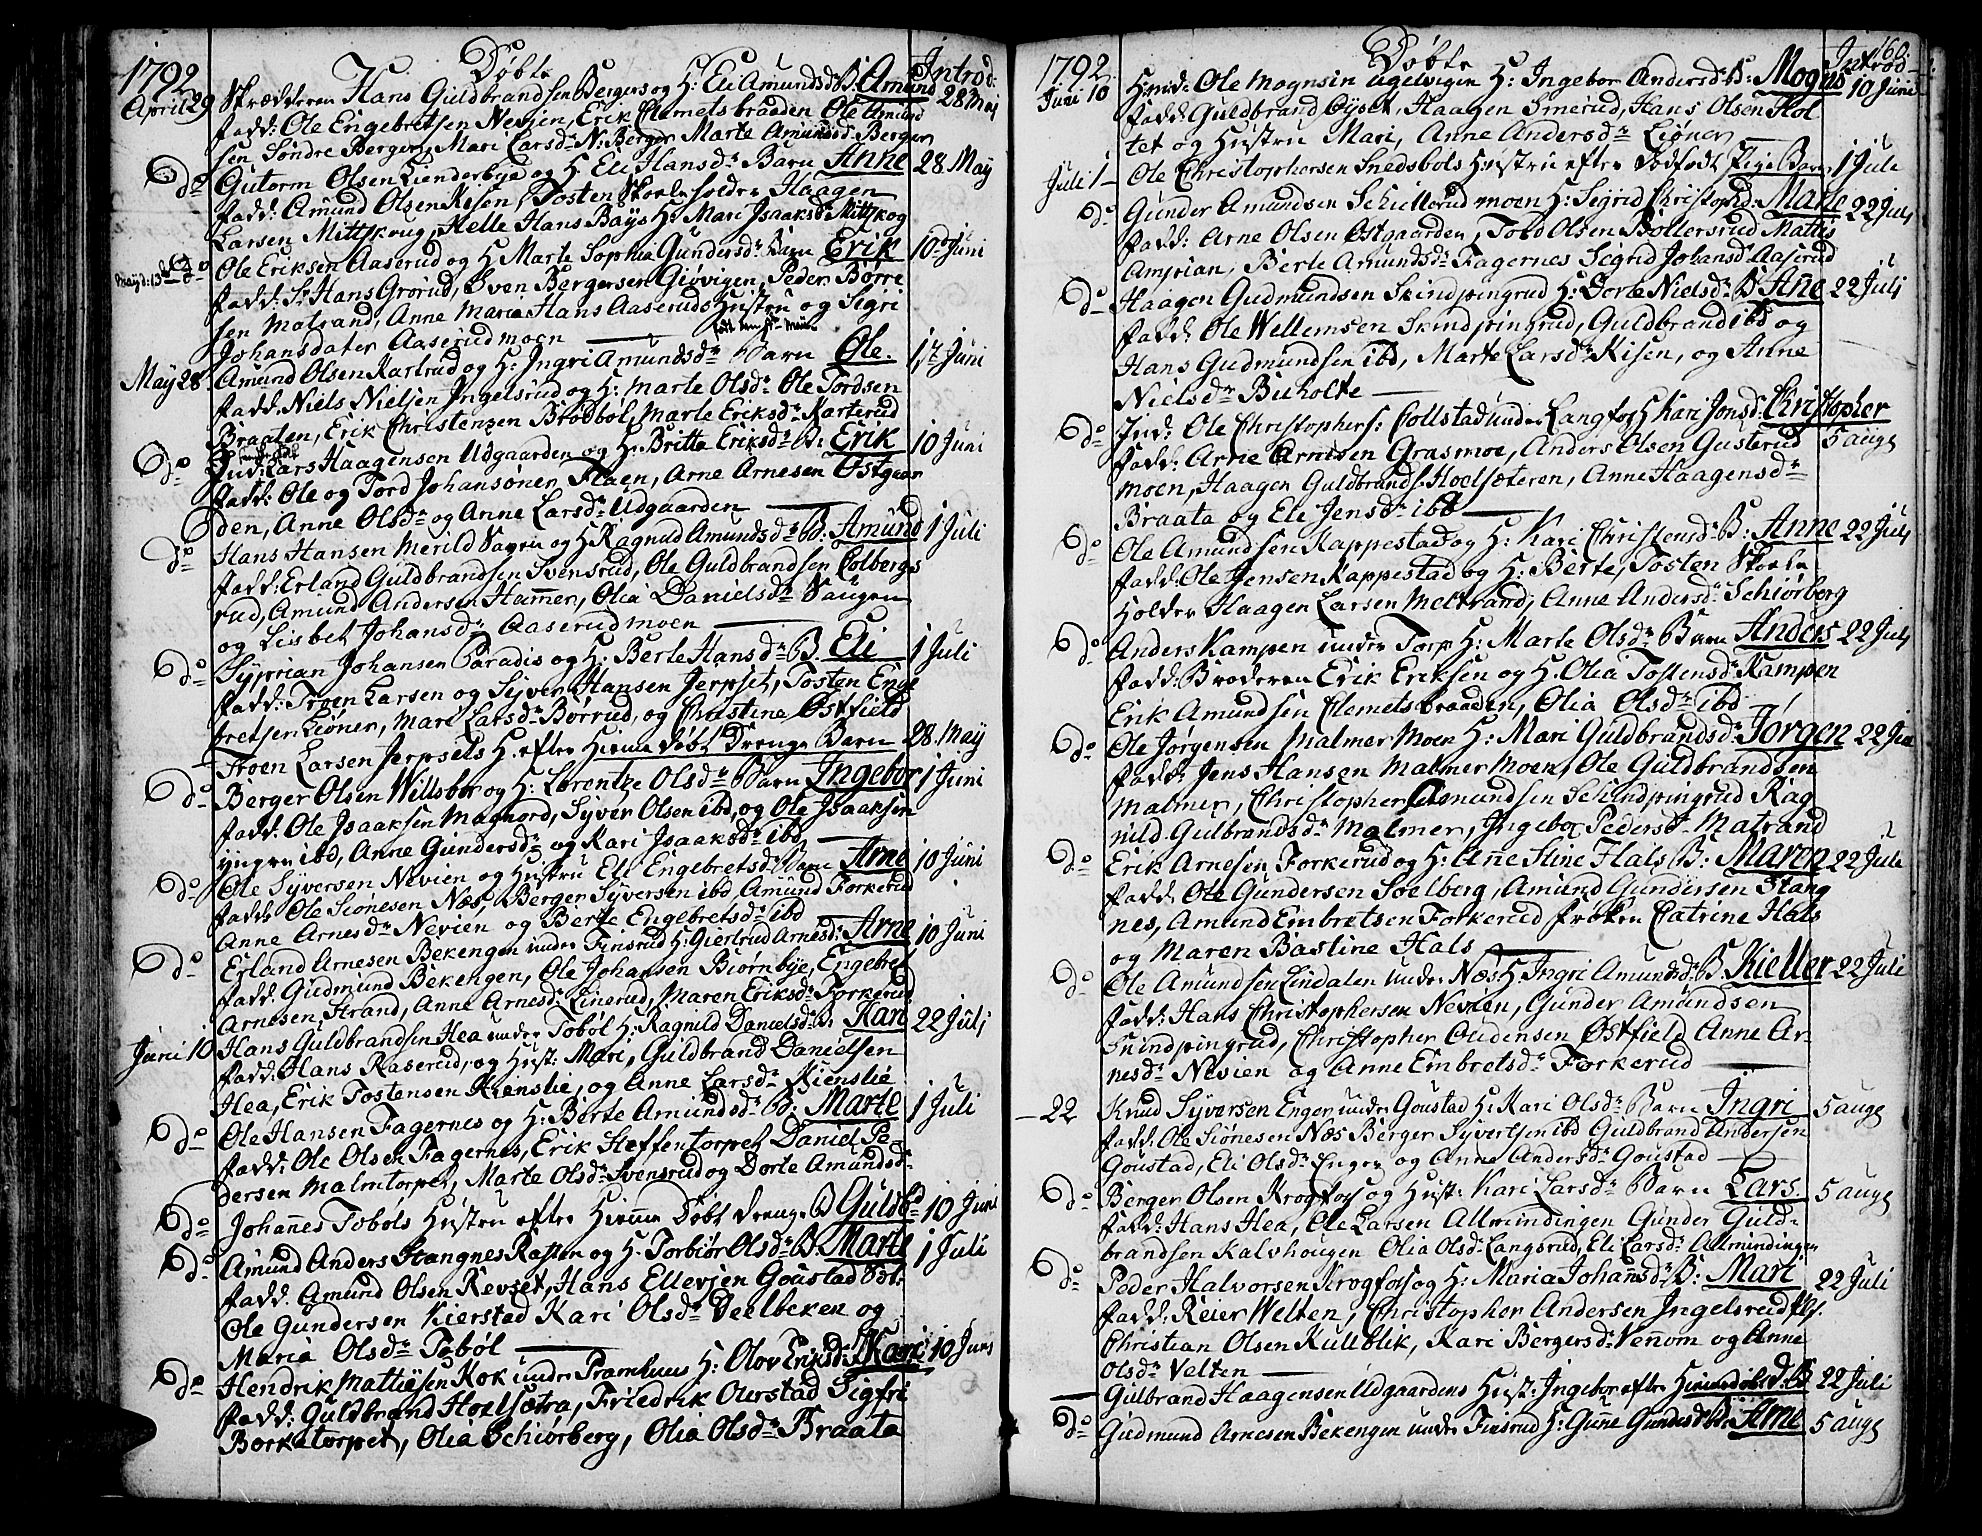 1792 Døbte Introd:
April 29 Skrædderen Hans Guldbrandsen Bergers og H: Eli Amundsd: B. Amund 28 Maj
fadd: Ole Engebretsen Nevien, Erik Clemetsbraaden Ole Amund
sen Søndre Berger, Mari Larsdr N: Berger Marte Amundsd: Berger
do Gutorm Olsen Lienderbye og H Eli Hansdr Barn Anne 28 May
fadd: Amund Olsen Kisen, Tosten Skoeleholder Haagen
Larsen Mittskoug, Helle Hans Bays H: Mari Isaaksd: Mittskog
May d: 13de do Ole Eriksen Aaserud og H Marte Sophia Gundersdr Barn Erik 10 Juni
fadd: Sr Hans Grorud, Sven Bergersen Giøvigen, Peder Børre
sen Matrand, Anne Maria Hans Aaseruds Hustru og Sigri
Johansdater Aaserudmoen
May 28 Amund Olsen Kartrud og H: Ingri Amundsdr Barn Ole. 17 Juni
fadd: Niels Nielsen Ingelsrud og H: Marte Olsdr Ole Tordsen
Braaten, Erik Christensen Brødbøl, Marte Eriksdr Karterud
do Ind: Lars Haagensen Udgaarden og H: Britta Eriksdr B: Erik 10 Juni
fadd: Ole og Tord Johansøner Flaen, Arne Arnesen Østgaar
den, Anne Olsdr og Anne Larsdr Udgaarden
do Hans Hansen Merild Saugen og H Ragnild Amundsdr B: Amund 1 Juli
fadd: Erland Guldbrandsen Svensrud, Ole Guldbrandsen Colbergs
rud, Amund Andersen Hammer, Olia Danielsdr Saugen
og Lisbet Johansdr Aaserudmoen
do Syprian Johansen Paradis og H: Berte Hansdr B. Eli 1 Juli
fadd: Troen Larsen og Syver Hansen Jerpset, Tosten Enge
bretsen Liøner, Mari Larsdr Børrud, og Christine Østfield
Troen Larsen Jerpsets H. efter Hiemme døbt Drenge Barn 28 May
do Berger Olsen Willsbør og H: Lorentze Olsdr Barn Ingebor 1 Juni
fadd: Ole Isaaksen Magnord, Syver Olsen ibd, og Ole Isaaksen
yngre ibd, Anne Gundersdr og Kari Isaaksdr ibd
do Ole Syversen Nevien og Hustru Eli Engebretsd: Barn Arne 10 Juni
fadd: Ole Siønesen Næs, Berger Syversen ibd Amund Forkerud
Anne Arnesdr Nevien og Berte Engebretsdr ibd
do Erland Arnesen Bekengen under Finsrud H: Giertrud Arnesd: Arne 10 Juni
fadd: Gudmund Bekengen, Ole Johansen Biørnbye, Engebret
Arnesen Strand, Anne Arnesdr Linerud, Maren Eriksdr Forkerud
Juni 10 Hans Guldbrandsen Hea under Tobøl H: Ragnild Danielsd: B: Kari 22 Juli
fadd: Hans Raserud, og Hust: Mari, Guldbrand Danielsen
Hea, Erik Tostensen Kienslie, og Anne Larsdr Kienslie
do Ole Hansen Fagernes og H: Berte Amundsdr B: Marte 1 Juli
fadd: Ole Olsen Fagernes, Erik Steffentorpet Daniel Pe-
dersen Malmtorpet, Marte Olsdr Svensrud og Dorte Amundsdr
do Johannes Tobøls Hustru efter Hiemme Døbt drenge B Guldb 10 Juni
do Amund Anders Stangnes Rasten og H. Torbiør Olsdr B. Marte 1 Juli
fadd. Amund Olsen Revset, Hans Ellevsen Goustad
Ole Gundersen Kierstad Kari Olsdr Deelbeken og
Maria Olsdr Tobøl
do Hendrik Mattiesen Kok under Pramhuus H: Olov Eriksd: Kari 10 Juni
fadd: Guldbrand Hoelsætra, Friedrik Overstad Sigfri
Borketorpet, Olia Schiørberg, Olia Olsdr Braata
1792 Døbte Introd: 160
Juni 10 Ole Mognsen Ugelvigen H: Ingebor Andersdr B: Mogns 10 Juni
fadd: Guldbrand Øyset, Haagen Smerud, Hans Olsen Hol
tet og Hustru Mari, Anne Andersdr Liøner
Juli 1 Ole Christophersen Snedsbøls Hustru efter Dødfødt Pige Barn 1 Juli
do Gunder Amundsen Schiillerud moen H: Sigrid Christophd: Marie 22 Juli
fadd: Arne Olsen Østgaarden, Tord Olsen Bøllersrud Mattis
Amprian, Berte Amundsdr Fagernes Sigrid Johansd Aaserud
do Haagen Gudmundsen Skindpingrud H: Dorte Nielsdr B Ane 22 Juli
fadd: Ole Wellemsen Skindpingrud, Guldbrand ibd og
Hans Gudmundsen ibd, Marte Larsdr Kisen, og Anne
Nielsdr Buholte
do Ind: Ole Christophers: Collstad under Langfos H Kari Jonsd: Christopher
fadd: Arne Arnesen Grasmoe, Anders Olsen Gusterud 5 augs
moen, Haagen Guldbrands: Hoelsæteren, Anne Haagensdr
Braata og Eli Jensdr ibd
do Ole Amundsen Kappestad og H: Kari Christensdr B: Anne 22 Juli
fadd: Ole Jensen Kappestad og H: Berte, Tosten Skoele
Holder Haagen Larsen Meltrand, Anne Andersdr Schiørberg
do Anders Kampen under Torp H: Marte Olsdr Barn Anders 22 Juli
fadd: Broderen Erik Eriksen og H. Olia Tostensdr Kampen
Erik Amundsen Clemetsbraaden, Olia Olsdr ibd
do Ole Jørgensen Malmer Moen H: Mari Guldbrandsdr Jørgen 22 Juli
fadd: Jens Hansen Malmer Moen, Ole Guldbrandsen
Malmer, Christopher Asmundsen Schindpingrud Rag
nild Gulbrandsdr Malmer, Ingebor Pedersdr Matrand
do Erik Arnesen Forkerud og H: Anne Stine Hals B: Maren 22 Juli
fadd: Ole Gundersen Soelberg, Amund Gundersen Stang
nes, Amund Embretsen Forkerud frøken Catrine Hals
og Maren Bastine Hals
do Ole Amundsen Lindalen under Næs H: Ingri Amundsd: B Kieller 22 Juli
fadd: Hans Christophersen Nevien, Gunder Amundsen
Skindpingrud, Christopher Oudensen Østfield Anne Ar-
nesdr Nevien og Anne Embretsdr Forkerud
- 22 Knud Syversen Enger under Goustad H: Kari Olsdr Barn Ingri 5 augs
fadd: Ole Siønesen Næs Berger Syvertsen ibd Guldbrand Andersen
Goustad, Eli Olsdr Enger og Anne Andersdr Goustad
do Berger Olsen Krogfoss og Hust: Kari Larsdr Barn Lars 5 augs
fadd: Hans Hea, Ole Larsen Allmindingen Gunder Guld-
brandsen Kalvhougen Olia Olsdr Langsrud, Eli Larsdr Allmindingen
do Peder Halvorsen Krogfoss og H: Maria Johannsdr B: Mari 22 Juli
fadd: Reier Welten, Christopher Andersen Ingelsrud
Christian Olsen Kullblik, Kari Bergersdr Vennom og Anne
Olsdr Velten
Gulbrand Haagensen Udgaardens Hust: Ingebor efter Hiemedøbt D. B 22 Juli
do Gudmund Arnesen Bekengen under Finsrud H: Gunne Gundersd B: Arne 5 augs